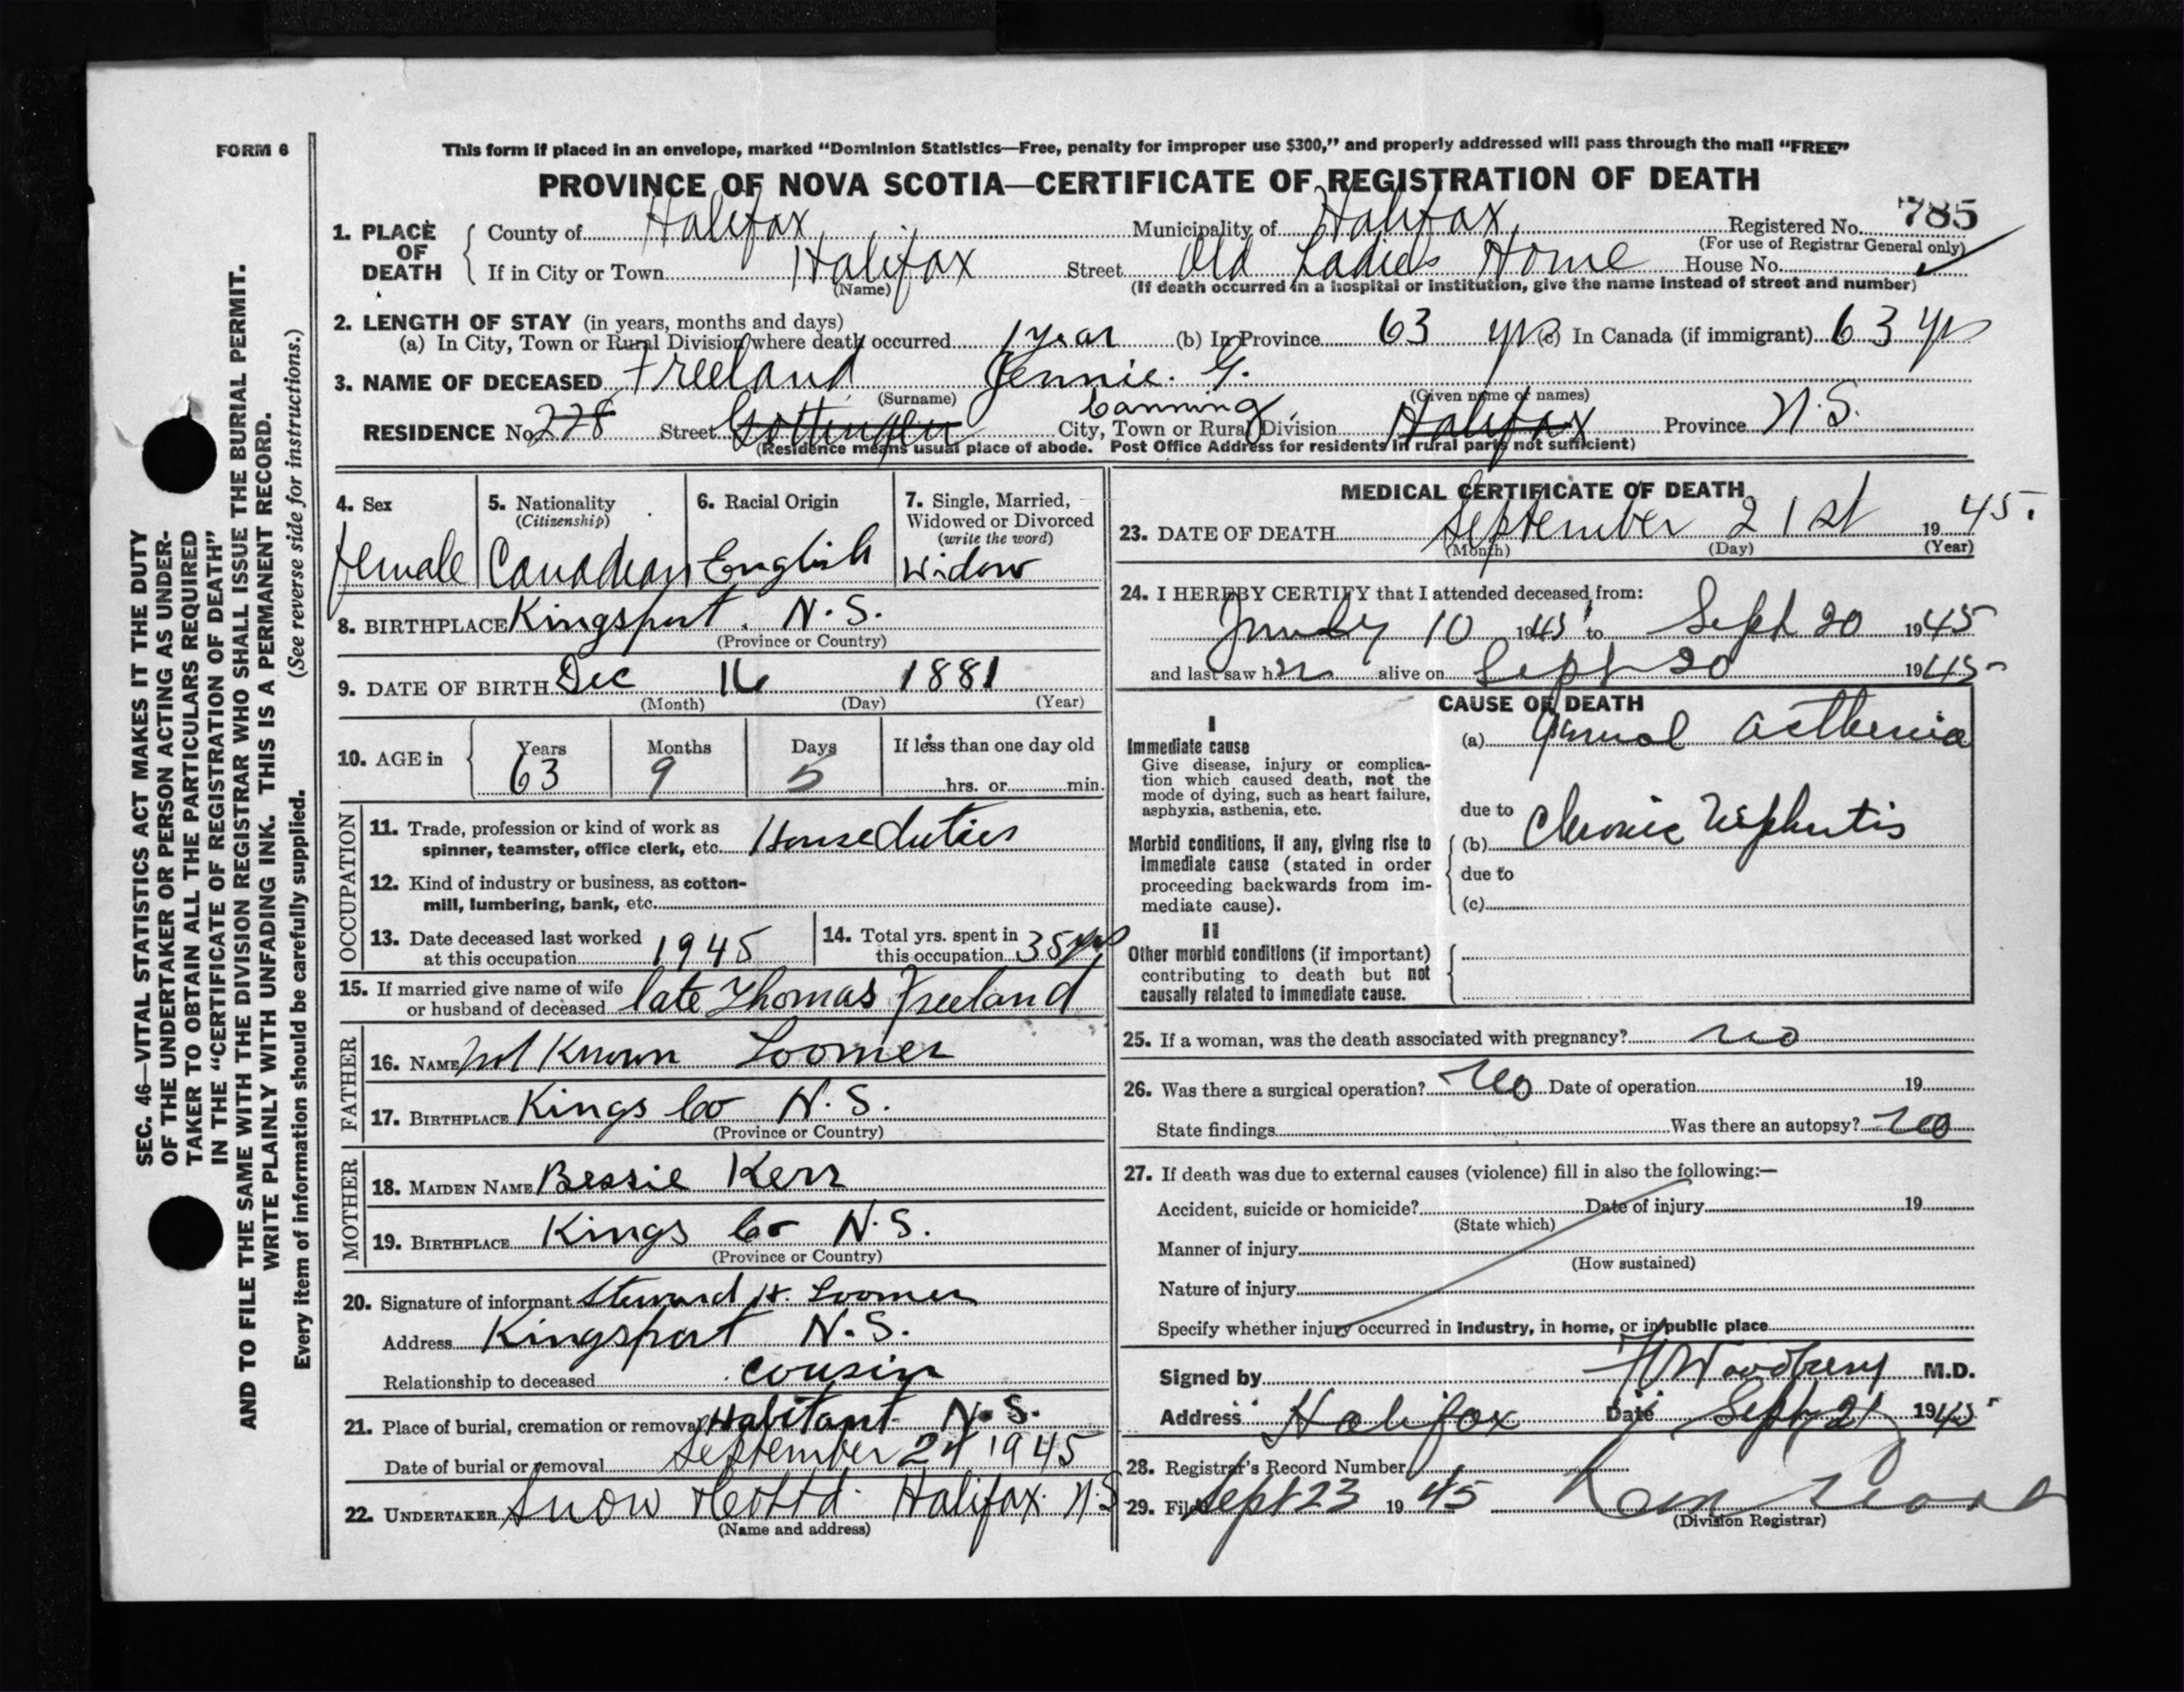 FORM 6
This form if placed in an envelope, marked "Dominion Statistics—Free, penalty for improper use $300," and properly addressed will pass through the mail "FREE"
PROVINCE OF NOVA SCOTIA—CERTIFICATE OF REGISTRATION OF DEATH
785
1. PLACE OF DEATH
County of Halifax Municipality of Halifax Registered No.
(For use of Registrar General only)
If in City or Town Halifax Street Old Ladies Home House No.
(Name) (If death occurred in a hospital or institution, give the name instead of street and number)
2. LENGTH OF STAY (in years, months and days)
(a) In City, Town or Rural Division where death occurred 1 year (b) In Province 63 yrs (c) In Canada (if immigrant) 63 yrs
3. NAME OF DECEASED Freeland Jennie. G.
(Surname) (Given name or names)
Canning
RESIDENCE No. 228 Street Gottingen City, Town or Rural Division Halifax Province N.S.
(Residence means usual place of abode. Post Office Address for residents in rural parts not sufficient)
4. Sex
female
5. Nationality
(Citizenship)
Canadian
6. Racial Origin
English
7. Single, Married,
Widowed or Divorced
(write the word)
Widow
8. BIRTHPLACE Kingsport. N.S.
(Province or Country)
9. DATE OF BIRTH Dec 16 1881
(Month) (Day) (Year)
10. AGE in
Years Months Days If less than one day old
63 9 5 hrs. or min.
OCCUPATION
11. Trade, profession or kind of work as
spinner, teamster, office clerk, etc. House duties
12. Kind of industry or business, as cotton-
mill, lumbering, bank, etc.
13. Date deceased last worked
at this occupation 1945
14. Total yrs. spent in
this occupation 35 yrs
15. If married give name of wife
or husband of deceased late Thomas Freeland
FATHER
16. NAME not Known Loomer
17. BIRTHPLACE Kings Co N.S.
(Province or Country)
MOTHER
18. MAIDEN NAME Bessie Kerr
19. BIRTHPLACE Kings Co N.S.
(Province or Country)
20. Signature of informant Steward H. Loomer
Address Kingsport N.S.
Relationship to deceased cousin
21. Place of burial, cremation or removal Habitant N.S.
Date of burial or removal September 24 1945
22. UNDERTAKER Snow & Co Ltd. Halifax. N.S.
(Name and address)
MEDICAL CERTIFICATE OF DEATH
23. DATE OF DEATH September 21st 1945.
(Month) (Day) (Year)
24. I HEREBY CERTIFY that I attended deceased from:
10 1945 to Sept 20 1945
and last saw her alive on Sept 20 1945
CAUSE OF DEATH
I
Immediate cause
Give disease, injury or complica-
tion which caused death, not the
mode of dying, such as heart failure,
asphyxia, asthenia, etc.
(a) General Asthenia
due to
Morbid conditions, if any, giving rise to
immediate cause (stated in order
proceeding backwards from im-
mediate cause).
(b) Chronic Nephritis
due to
(c)
II
Other morbid conditions (if important)
contributing to death but not
causally related to immediate cause.
25. If a woman, was the death associated with pregnancy? no
26. Was there a surgical operation? No Date of operation 19
State findings Was there an autopsy? no
27. If death was due to external causes (violence) fill in also the following:—
Accident, suicide or homicide? Date of injury 19
(State which)
Manner of injury
(How sustained)
Nature of injury
Specify whether injury occurred in industry, in home, or in public place
Signed by Woodbury M.D.
Address Halifax Date Sept 21 1945
28. Registrar's Record Number
29. Filed Sept 23 1945
(Division Registrar)
SEC. 46—VITAL STATISTICS ACT MAKES IT THE DUTY
OF THE UNDERTAKER OR PERSON ACTING AS UNDER-
TAKER TO OBTAIN ALL THE PARTICULARS REQUIRED
IN THE "CERTIFICATE OF REGISTRATION OF DEATH"
AND TO FILE THE SAME WITH THE DIVISION REGISTRAR WHO SHALL ISSUE THE BURIAL PERMIT.
WRITE PLAINLY WITH UNFADING INK. THIS IS A PERMANENT RECORD.
Every item of information should be carefully supplied. (See reverse side for instructions.)